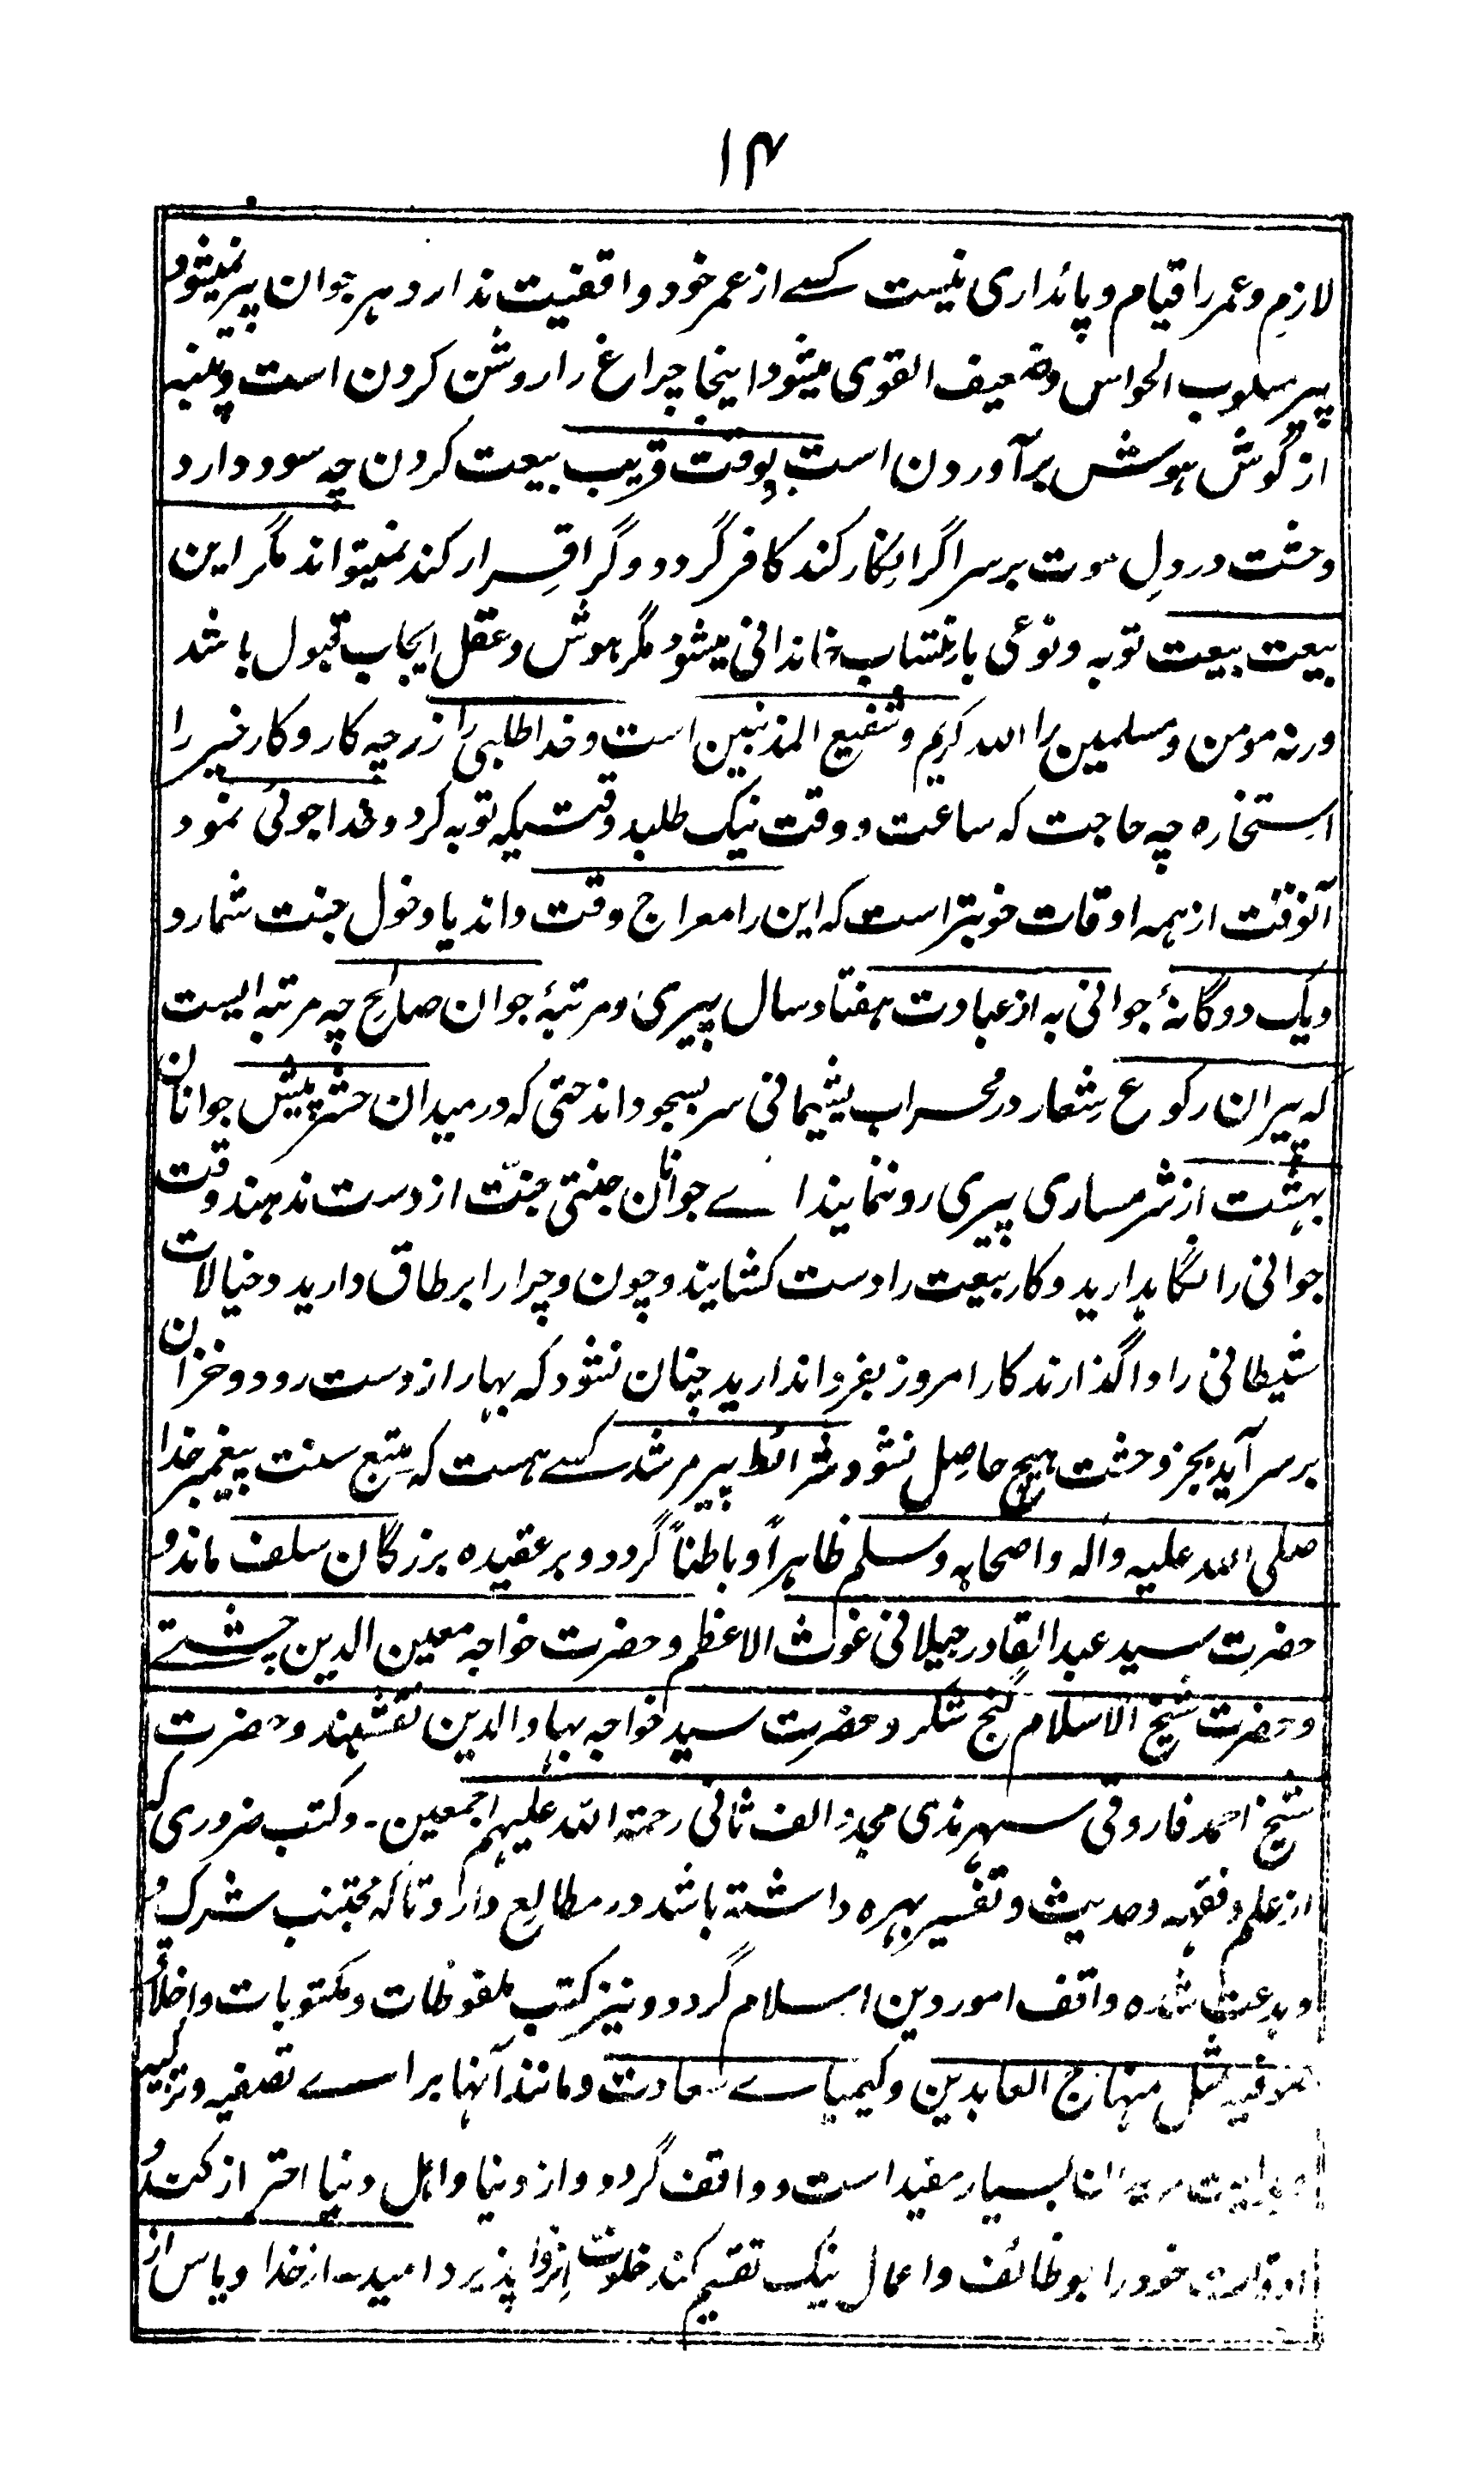 ۱۴
لازم و عمر را قیام و پائداری نیست کسے از عمر خود واقفیت ندارد هر جوان پیر نمیشود
پیر مسلوب الحواس و ضعیف القوی میشود اینجا چراغ را روشن کردن است و پنبه
از گوش هوش بر آوردن است بوقت قریب بیعت کردن چه سود دارد
وحشت در دل موت بر سر اگر انکار کند کافر گردد و گر اقرار کند نمیتواند مگر این
بیعت بیعت توبه و نوعی بانتساب خاندانی میشود مگر هوش و عقل ایجاب قبول باشد
ورنه مومن و مسلمین را الله کریم و شفیع المذنبین است و خدا طلبی را زر چه کار و کار خیر را
استخاره چه حاجت که ساعت و وقت نیک طلبد وقتیکه توبه کرد و خدا جوئی نمود
آنوقت از همه اوقات خوبتر است که این را معراج وقت داند یا دخول جنت شمارد
و یک دوگانۂ جوانی به از عبادت هفتاد سال پیری و مرتبۂ جوان صالح چه مرتبه ایست
که پیران رکوع شعار در محراب پشیمانی سر بسجود اند حتی که در میدان حشر پیش جوانان
بهشت از شرمساری پیری رو ننمایند اے جوانان جنتی جنّت از دست ندهند وقت
جوانی را نگاہدارید و کار بیعت را دست کشایند و چون و چرا را بر طاق دارید و خیالات
شیطانی را واگذارند کار امروز بفردا ندارید چنان نشود که بهار از دست رود و خزان
بر سر آید بجز وحشت هیچ حاصل نشود شرائط پیر مرشد کسے هست که متبع سنت پیغمبر خدا
صلی الله علیه و اله و اصحابه و سلم ظاهراً و باطناً گردد و بر عقیده بزرگان سلف ماند و
حضرت سید عبدالقادر جیلانی غوث الاعظم و حضرت خواجه معین الدین چشتے
و حضرت شیخ الاسلام گنج شکر و حضرت سید خواجه بهاء والدین نقشبند و حضرت
شیخ احمد فاروقی سهرندی مجدد الف ثانی رحمته الله علیهم اجمعین ۔ و کتب ضروری که
از علم و فقهه و حدیث و تفسیر بهره داشته باشد در مطالع دارد تا که مجتنب شرک و
و بدعت شده واقف امور دین اسلام گردد و نیز کتب ملفوظات و مکتوبات و اخلاق
صوفیه مثل منهاج العابدین و کیمیاے سعادت و مانند آنها براے تصفیه و تزکیه
و هدایت مریدان بسیار مفید است و واقف گردد و از دنیا و اهل دنیا احتراز کند و
اوقات خود را بوظائف و اعمال نیک تقسیم کند خلوت انزوا پذیرد امید از خدا و یاس از